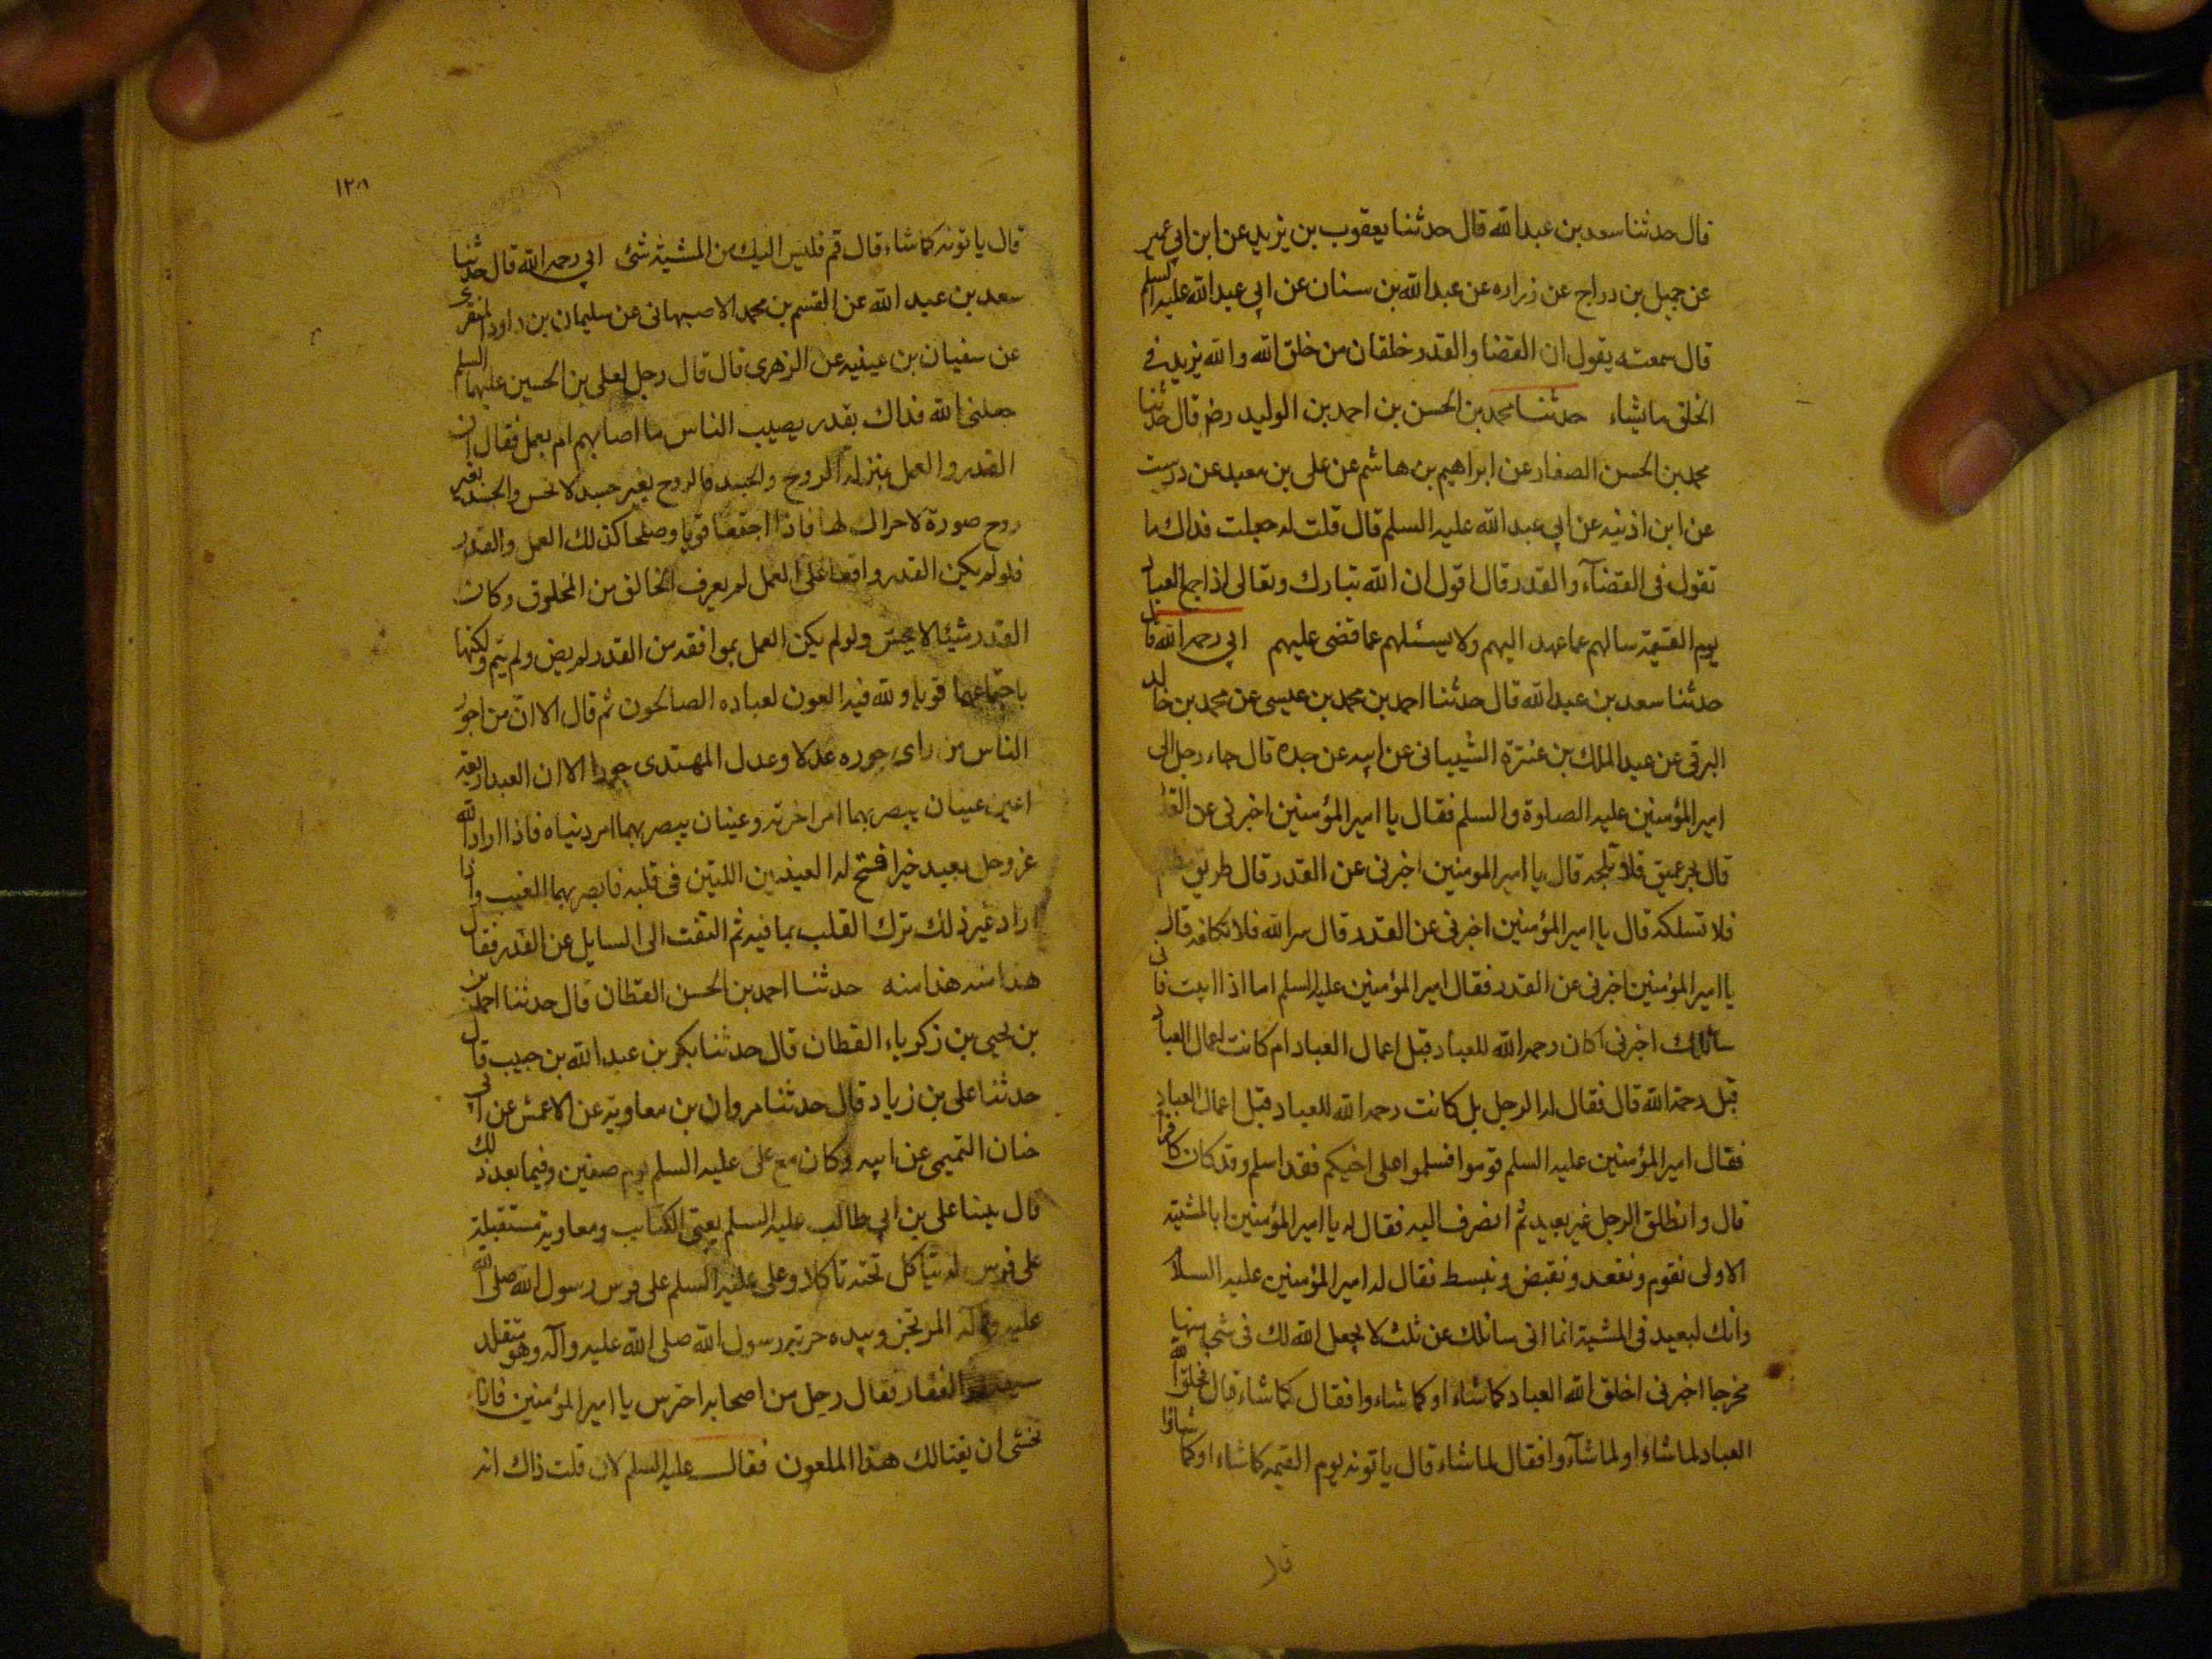 قال حدثنا سعد بن عبد الله قال حدثنا يعقوب بن يزيد عن ابن ابي عمير
عن جميل بن دراج عن زراره عن عبد الله بن سنان عن ابي عبد الله عليه السلم
قال سمعته يقول ان القضا والقدر خلقان من خلق الله والله يزيد في
الخلق ما يشاء حدثنا محمد بن الحسن بن احمد بن الوليد رضه قال حدثنا
محمد بن الحسن الصفار عن ابراهيم بن هاشم عن علي بن معبد عن درست
عن ابن اذنيه عن ابي عبد الله عليه السلم قال قلت له جعلت فداك ما
تقول في القضآء والقدر قال اقول ان الله تبارك وتعالى اذا جمع العباد
يوم القيمة سالهم عما عهد اليهم ولا يسئلهم عما قضى عليهم ابي رحمه الله قال
حدثنا سعد بن عبد الله قال حدثنا احمد بن محمد بن عيسى عن محمد بن خالد
البرقي عن عبد الملك بن عنترة الشيباني عن ابيه عن جده قال جاء رجل الى
امير المؤمنين عليه الصلوة والسلم فقال يا امير المؤمنين اخبرني عن القدر
قال بحر عميق فلا تلجه قال يا امير المومنين اخبرني عن القدر قال طريق
فلا تسلكه قال يا امير المؤمنين اخبرني عن القدر قال سر الله فلا تكلفه قال
يا امير المؤمنين اخبرني عن القدر فقال امير المؤمنين عليه السلم اما اذا ابيت فاني
سائلك اخبرني اكان رحمه الله للعباد قبل اعمال العباد ام كانت اعمال العباد
قبل رحمة الله قال فقال له الرجل بل كانت رحمه الله للعباد قبل اعمال العباد
فقال امير المؤمنين عليه السلم قوموا فسلموا على اخيكم فقد اسلم وقد كان كافرا
قال وانطلق الرجل غير بعيد ثم انصرف اليه فقال له يا امير المؤمنين ابالمشية
الاولى نقوم ونقعد ونقبض ونبسط فقال له امير المؤمنين عليه السلا
وانك لبعيد في المشية انما اني سائلك عن ثلث لا يجعل الله لك في شي منها
مخرجا اخبرني اخلق الله العباد كما شاء او كما شاءوا فقال كما شاء قال فخلق الله
العباد لما شاء او لما شآءوا فقال لما شاء قال ياتونه يوم القيمة كما شاء او كما شاؤا
فلا
١٢٨
قال ياتونه كما شاء قال قم فليس اليك من المشية شئ ابي رحمه الله قال حدثنا
سعد بن عبد الله عن القسم بن محمد الاصبهاني عن سليمان بن داود المنقري
عن سفيان بن عيينه عن الزهري قال قال رجل لعلي بن الحسين عليهما السلم
جعلني الله فداك بقدر يصيب الناس ما اصابهم ام بعمل فقال ان
القدر والعمل بمنزلة الروح والجسد فالروح بغير جسد لا تحس والجسد بغير
روح صورة لا حراك لها فاذا اجتمعا قويا وصلحا كذلك العمل والقدر
فلو لم يكن القدر واقعا على العمل لم يعرف الخالق من المخلوق وكان
القدر شيئا لا يحس ولو لم يكن العمل بموافقه من القدر لم يمض ولم يتم ولكنهما
باجتماعهما قويا ولله فيه العون لعباده الصالحون ثم قال الا ان من اجور
الناس من راى جوره عدلا وعدل المهتدى جورا الا ان العبد اربعة
اعين عينان يبصر بهما امر اخرته وعينان يبصر بهما امر دنياه فاذا اراد الله
عز وجل بعبد خيرا فتح له العينين اللتين في قلبه فابصر بهما العيب واذا
اراد غير ذلك ترك القلب بما فيه ثم التفت الى السايل عن القدر فقال
هذا منه هذا منه حدثنا احمد بن الحسن القطان قال حدثنا احمد بن
بن يحيى بن زكرياء القطان قال حدثنا بكر بن عبد الله بن حبيب قال
حدثنا علي بن زياد قال حدثنا مروان بن معاوية عن الاعمش عن ابي
حنان التميمي عن ابيه وكان مع علي عليه السلم يوم صفين وفيما بعد ذلك
قال بينا علي بن ابي طالب عليه السلم يعبئ الكتايب ومعاوية مستقبله
على فرس له يتاكل تحته تاكلا وعلي عليه السلم على فرس رسول الله صلى الله
عليه وآله المرتجز وبيده حربة رسول الله صلى الله عليه وآله وهو متقلد
الفقار فقال رجل من اصحابه احترس يا امير المؤمنين فانا
نخشى ان يغتالك هذا الملعون فقال عليه السلم لان قلت ذاك انه